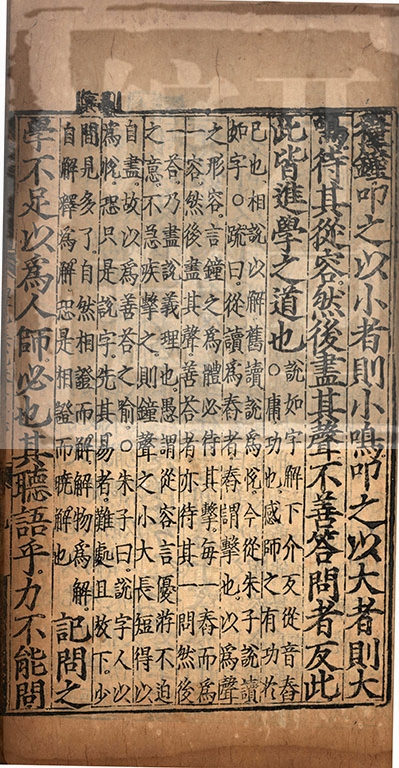 鐘叩之以小者則小鳴叩之以大者則大
鳴待其從容然後盡其聲不善答問者反此
此皆進學之道也
說如字解下介反從音舂
〇庸功也感師之有功於
己也相說以解舊讀說為悅今從朱子說讀
如字〇疏曰從讀為舂者舂謂擊也以為聲
之形容言鐘之為體必待其擊每一舂而為
一容然後盡其聲善荅者亦待其一問然後
一荅乃盡說義理也愚謂從容言優游不迫
之意不急疾擊之則鐘聲之小大長短得以
自盡故以為善荅之喻〇朱子曰說字人以
為悅恐只是說字先其易者難處且放下少
間見多了自然相證而解解物為解
自解釋為解恐是相證而曉解也
記問之
學不足以為人師必也其聽語乎力不能問